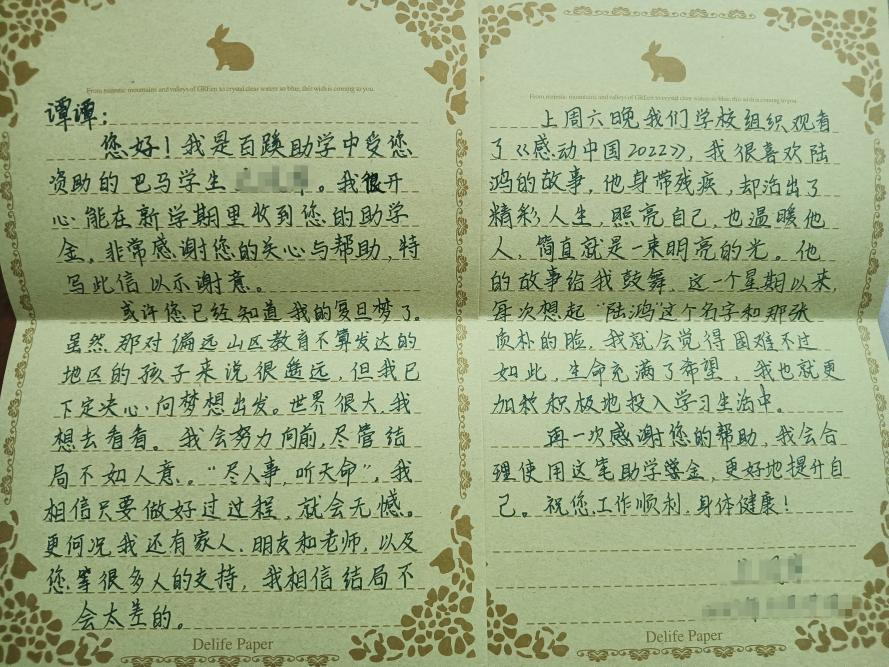 From majestic mountains and valleys of GREen to crystal clear waters so blue, this wish is coming to you.
谭谭：
您好！我是百蹊助学中受您
资助的巴马学生。我很开
心能在新学期里收到您的助学
金，非常感谢您的关心与帮助，特
写此信以示谢意。
或许您已经知道我的复旦梦了。
虽然那对偏远山区教育不算发达的
地区的孩子来说很遥远，但我已
下定决心向梦想出发。世界很大，我
想去看看。我会努力向前，尽管结
局不如人意。“尽人事，听天命”，我
相信只要做好过过程，就会无憾。
更何况我还有家人、朋友和老师，以及
您等很多人的支持，我相信结局不
会太差的。
Delife Paper
From majestic mountains and valleys of GREen to crystal clear waters so blue, this wish is coming to you.
上周六晚我们学校组织观看
了《感动中国2022》，我很喜欢陆
鸿的故事，他身带残疾，却活出了
精彩人生，照亮自己，也温暖他
人，简直就是一束明亮的光。他
的故事给我鼓舞，这一个星期以来，
每次想起“陆鸿”这个名字和那张
质朴的脸，我就会觉得困难不过
如此，生命充满了希望，我也就更
加积极地投入学习生活中。
再一次感谢您的帮助，我会合
理使用这笔助学金，更好地提升自
己。祝您工作顺利，身体健康！
Delife Paper